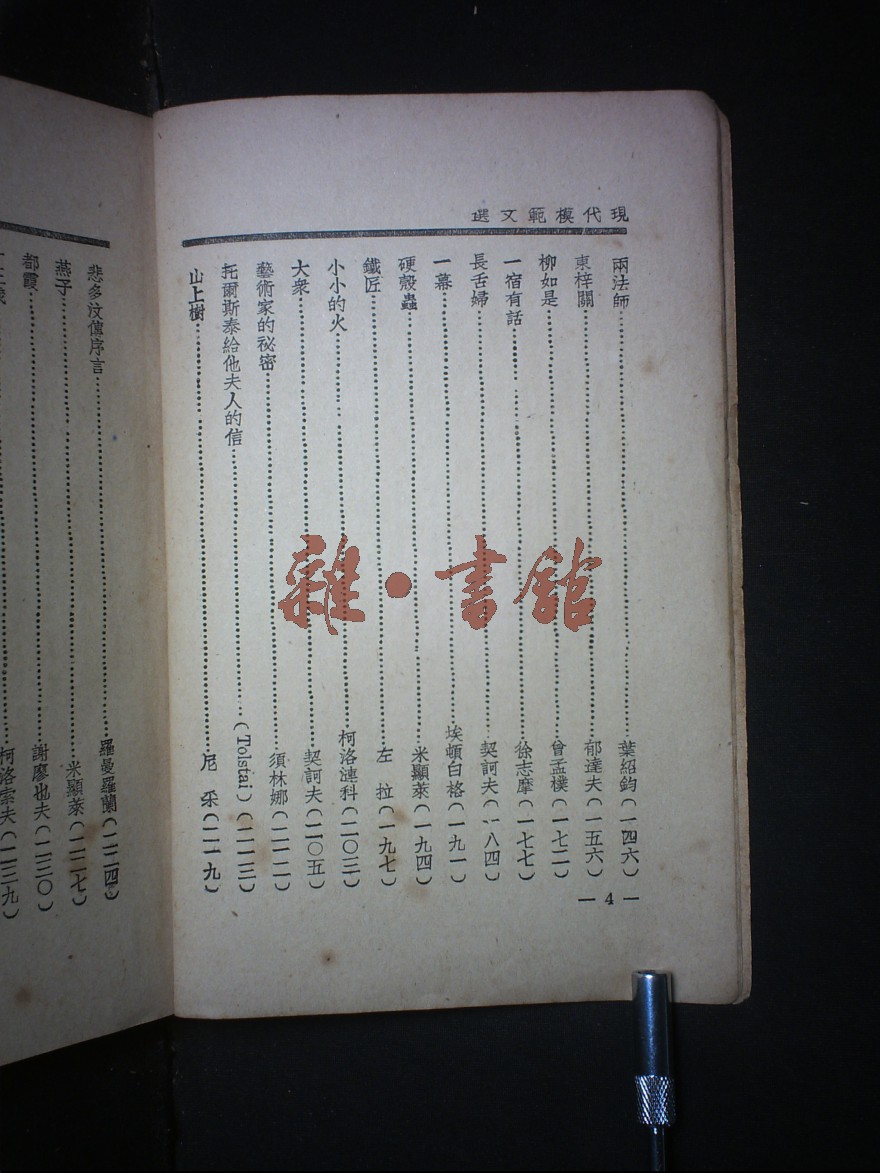 現代模範文選
兩法師……葉紹鈞(一四六)
東梓關……郁達夫(一五六)
柳如是……曾孟樸(一七二)
一宿有話……徐志摩(一七七)
長舌婦……契訶夫(一八四)
一幕……埃頓白格(一九一)
硬殼蟲……米顯萊(一九四)
鐵匠……左拉(一九七)
小小的火……柯洛漣科(二〇三)
大衆……契訶夫(二〇五)
藝術家的秘密……須林娜(二一二)
托爾斯泰給他夫人的信……(Tolstai)(二一三)
山上樹……尼采(二一九)
— 4 —
悲多汶傳序言……羅曼羅蘭(二二四)
燕子……米顯萊(二二七)
都霞……謝廖也夫(二三〇)
柯洛索夫(二三九)
雜·書館